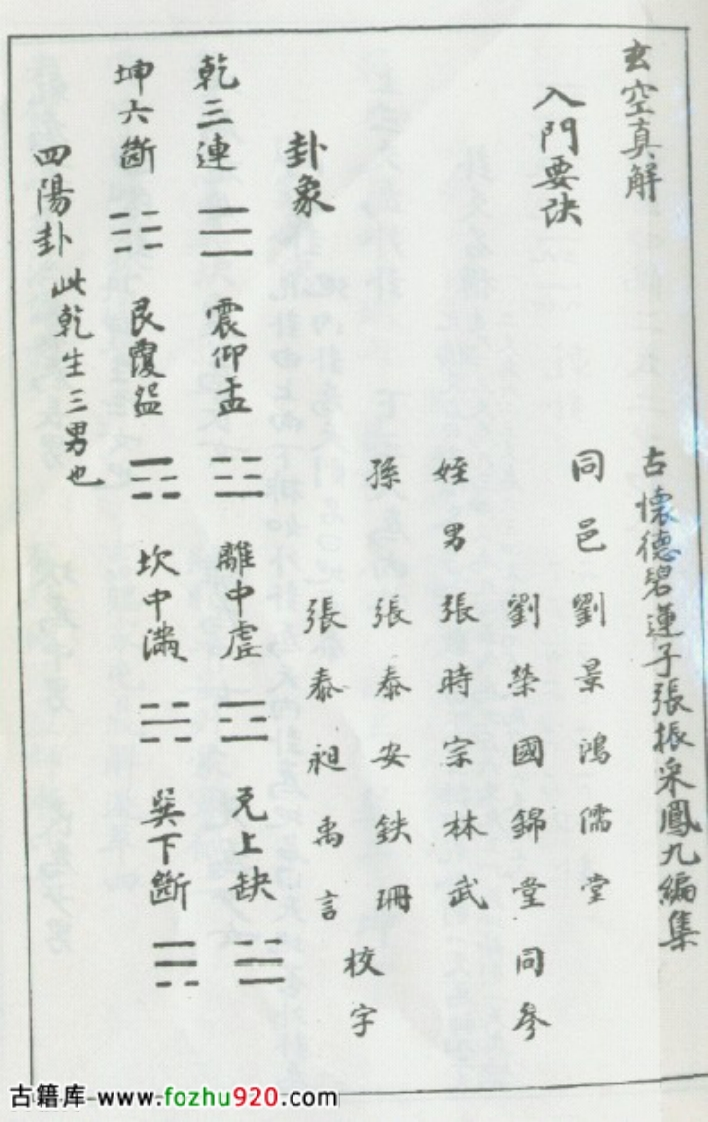 玄空真解
古懷德碧蓮子張振采鳳九編集
入門要訣
同邑劉景鴻儒堂
劉榮國錦堂同參
姪男張時宗林武
孫 張泰安鉄珊
張泰昶禹言
校字
卦象
乾三連☰ 震仰盂☳ 離中虛☲ 兌上缺☱
坤六斷☷ 艮覆盌☶ 坎中滿☵ 巽下斷☴
四陽卦 此乾生三男也
古籍库 www.fozhu920.com